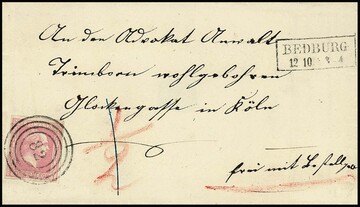 An den Advokat Anwalt
Trimborn wohlgeboren
Glockengasse in Köln
BEDBURG
12 10 3-4
82
frei mit Bestellgeld